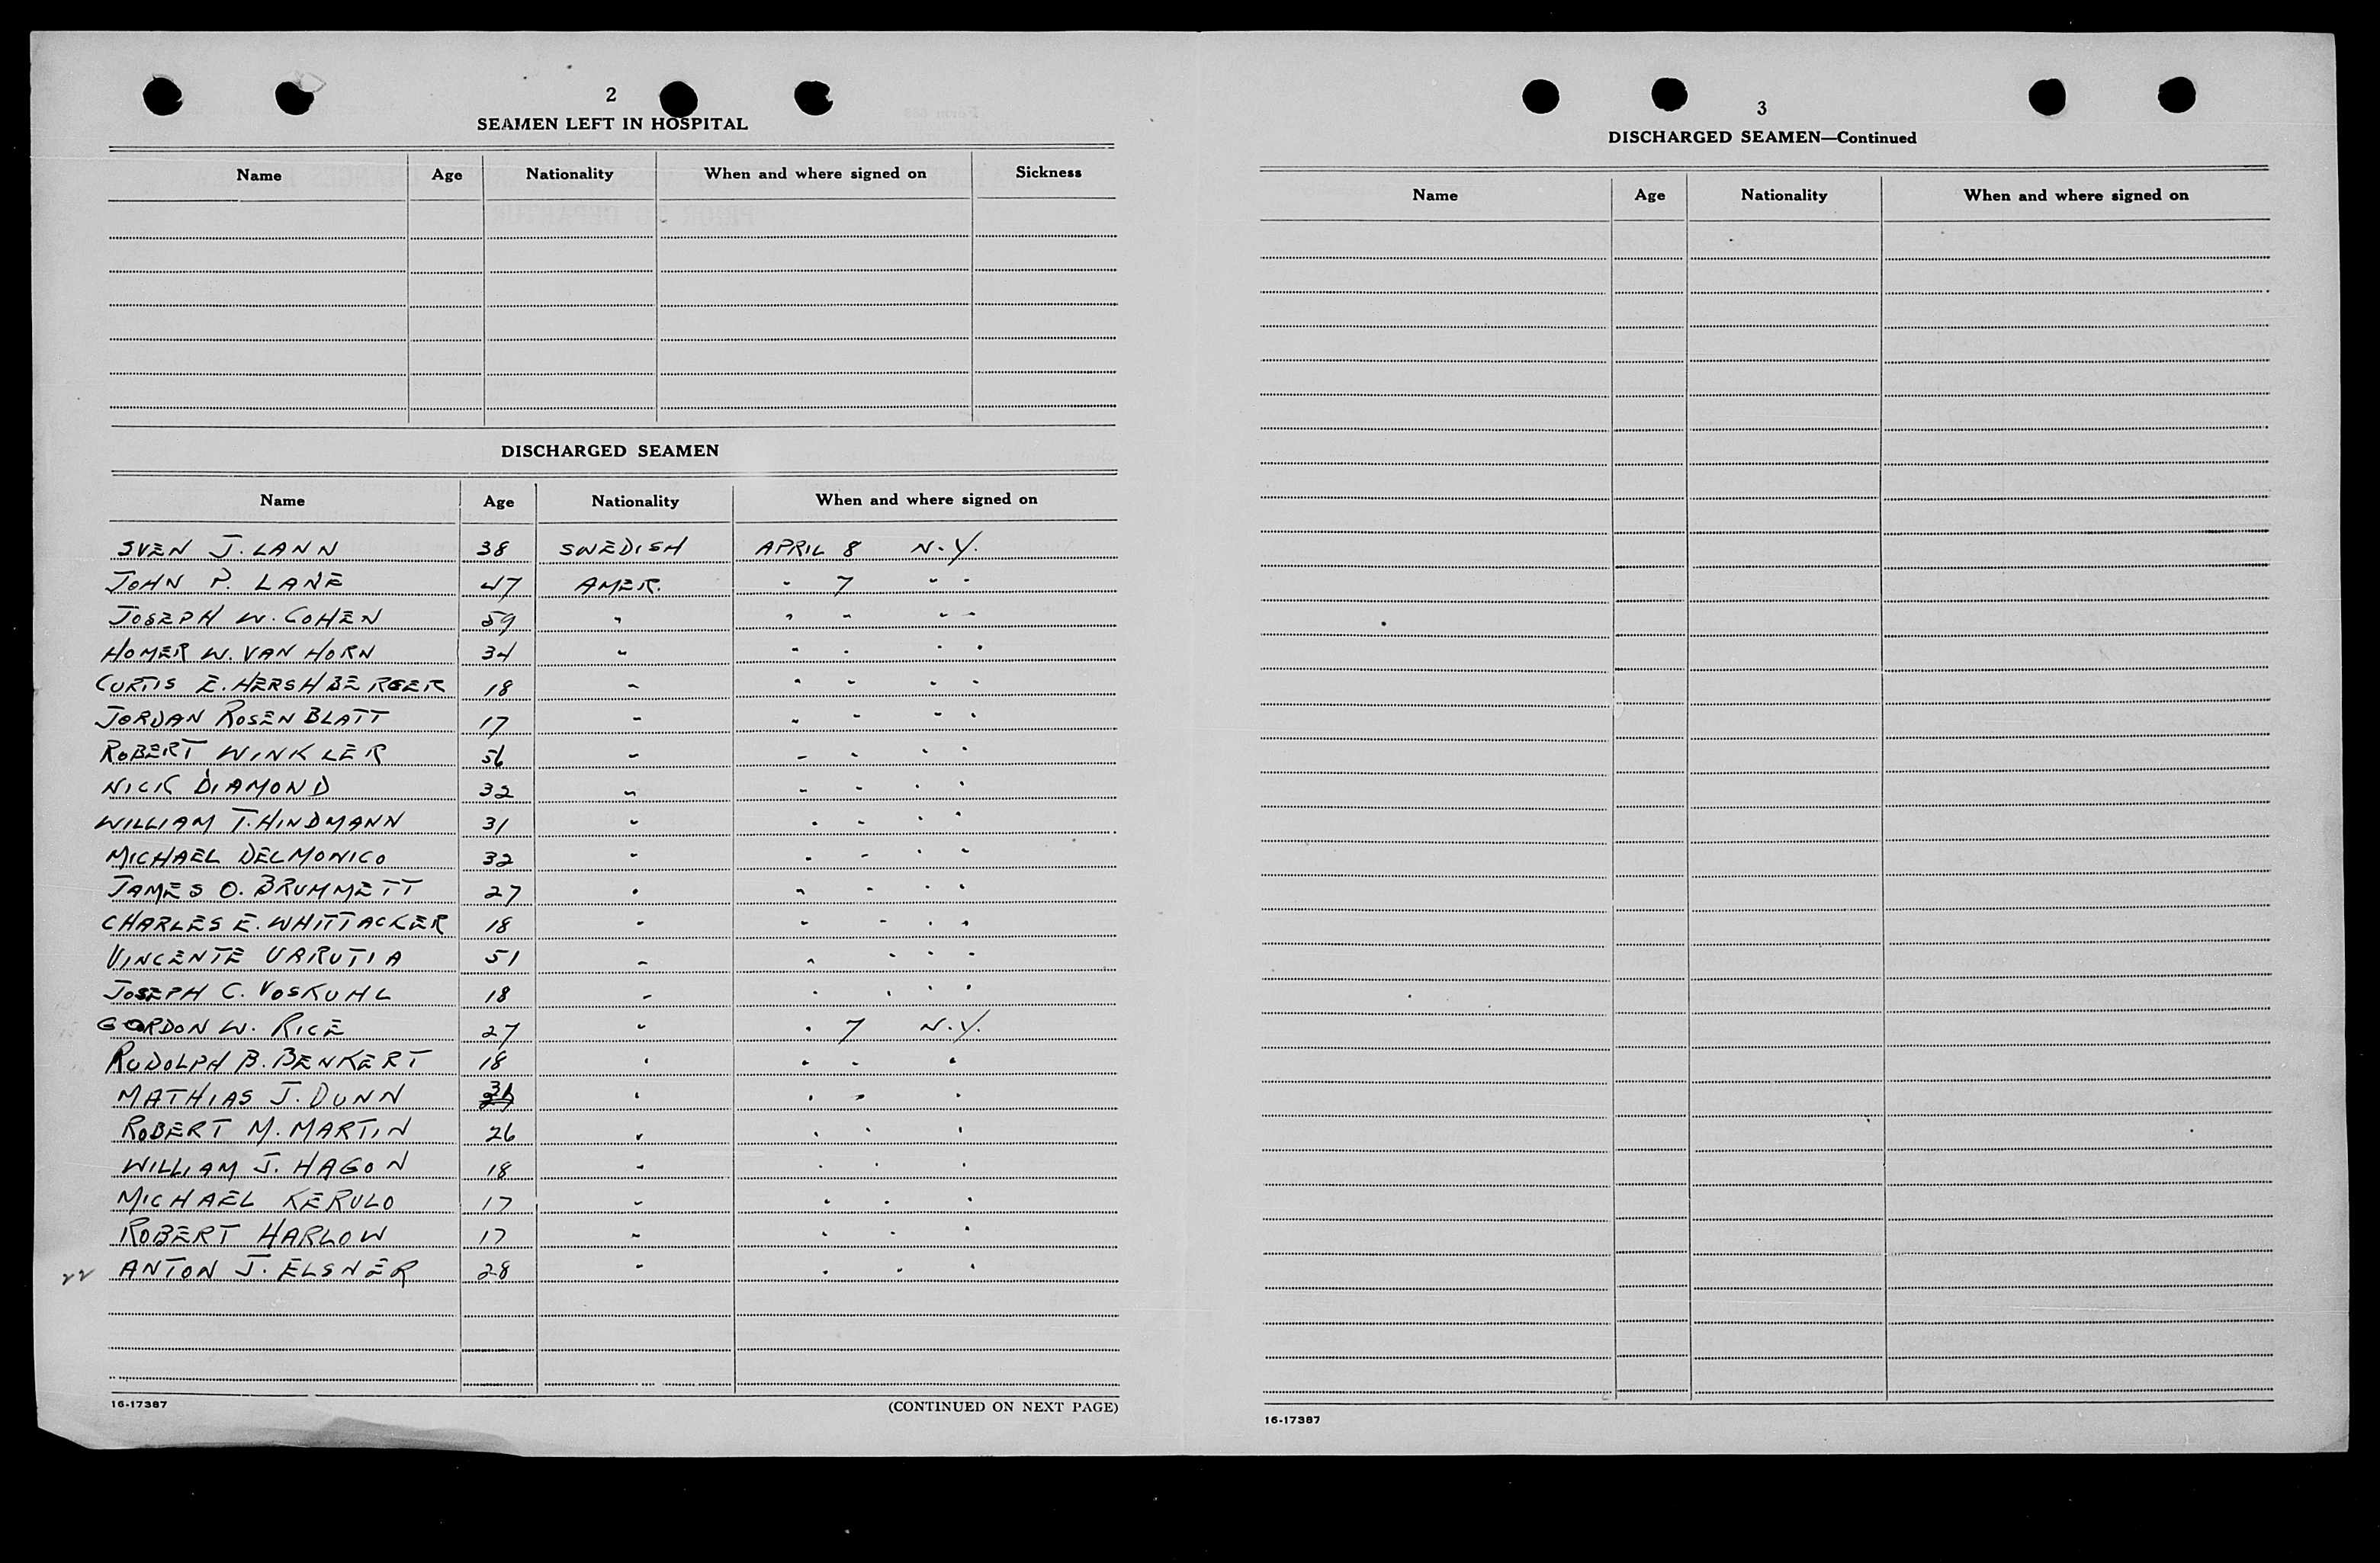 2
SEAMEN LEFT IN HOSPITAL
Name Age Nationality When and where signed on Sickness
DISCHARGED SEAMEN
Name Age Nationality When and where signed on
SVEN J. LANN 38 SWEDISH APRIL 8 N.Y.
JOHN P. LANE 47 AMER. " 7 " "
JOSEPH W. COHEN 59 " " " " "
HOMER W. VAN HORN 34 " " " " "
CURTIS E. HERSHBERGER 18 " " " " "
JORDAN ROSENBLATT 17 " " " " "
ROBERT WINKLER 56 " " " " "
NICK DIAMOND 32 " " " " "
WILLIAM T. HINDMANN 31 " " " " "
MICHAEL DELMONICO 32 " " " " "
JAMES O. BRUMMETT 27 " " " " "
CHARLES E. WHITTACKER 18 " " " " "
VINCENTE URRUTIA 51 " " " " "
JOSEPH C. VOSKUHL 18 " " " " "
GORDON W. RICE 27 " " 7 N.Y.
RUDOLPH B. BENKERT 18 " " " "
MATHIAS J. DUNN " " " "
ROBERT M. MARTIN 26 " " " "
WILLIAM J. HAGON 18 " " " "
MICHAEL KERULO 17 " " " "
ROBERT HARLOW 17 " " " "
22 ANTON J. ELSNER 28 " " " "
16-17387 (CONTINUED ON NEXT PAGE)
3
DISCHARGED SEAMEN—Continued
Name Age Nationality When and where signed on
16-17387